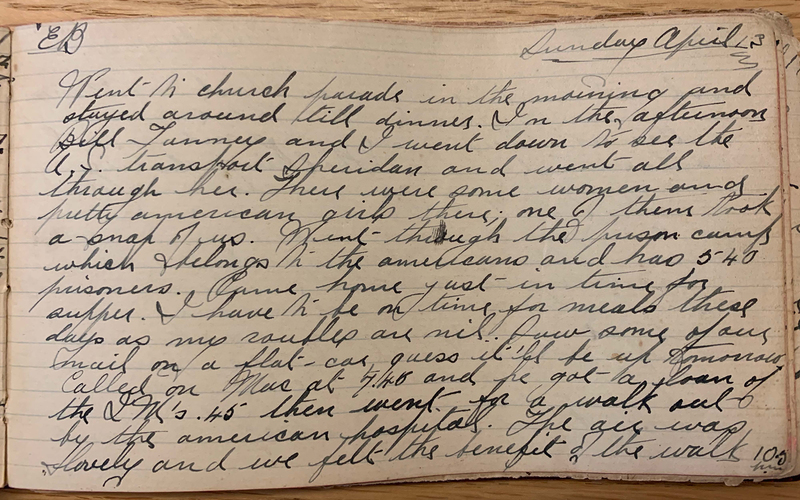 EB Sunday April 13
Went to church parade in the morning and
stayed around till dinner. In the afternoon
Bill Tanney and I went down to see the
U.S. transport Sheridan and went all
through her. There were some women and
pretty american girls there; one of them took
a snap of us. Went through the prison camp
which belongs to the americans and has 540
prisoners. Came home just in time for
supper. I have to be on time for meals these
days as my roubles are nil. Saw some of our
mail on a flat-car guess it'll be up tomorrow
Called on Mac at 7.40 and he got a loan of
the I.M's .45 then went for a walk out
by the american hospital. The air was
lovely and we felt the benefit of the walk